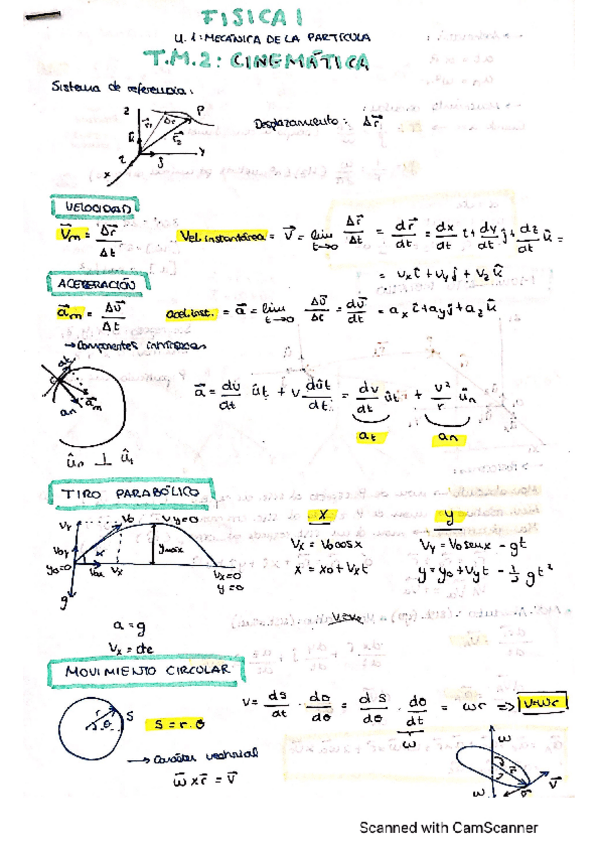 FISICA I
U.1: MECÁNICA DE LA PARTÍCULA
T.M.2: CINEMÁTICA
Sistema de referencia:
z P
r₁ Δr r₂
k
i j y
x
Desplazamiento: Δr⃗
VELOCIDAD
V⃗m = Δr⃗/Δt Vel. instantánea = V⃗ = lim t→0 Δr⃗/Δt = dr⃗/dt = dx/dt i + dy/dt j + dz/dt û =
= Vx î + Vy ĵ + Vz û
ACELERACIÓN
a⃗m = Δv⃗/Δt acel. inst. = a⃗ = lim t→0 Δv⃗/Δt = dv⃗/dt = ax î + ay ĵ + az û
→ Componentes intrínsecas
at
an am
a⃗ = dv/dt ût + v dût/dt = dv/dt ût + v²/r ûn
at an
ûn ⊥ ût
TIRO PARABÓLICO
x y
Vy V₀ Vy=0
V₀y α ymax
y₀=0 V₀x Vx Vx=0
y=0
g
Vx = V₀cosα Vy = V₀senα - gt
x = x₀ + Vxt y = y₀ + Vyt - ½gt²
a = g
Vx = cte
MOVIMIENTO CIRCULAR
r θ S
S = r·θ
V = ds/dt · dθ/dθ = ds/dθ · dθ/dt = ωr => V=ωr
ω
→ Carácter vectorial
ω⃗ x r⃗ = V⃗
ω
r⃗
V⃗
Scanned with CamScanner